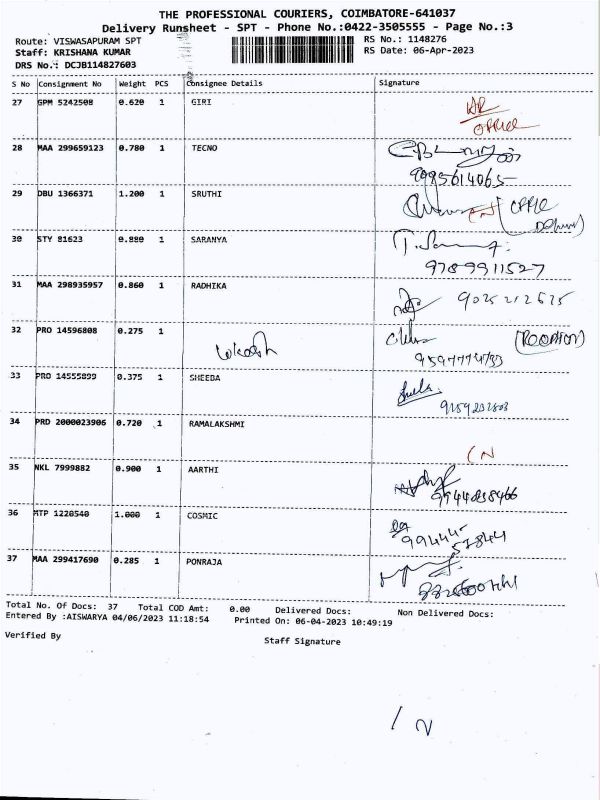 THE PROFESSIONAL COURIERS, COIMBATORE-641037
Delivery Runsheet - SPT - Phone No.:0422-3505555 - Page No.:3
Route: VISWASAPURAM SPT
Staff: KRISHANA KUMAR
DRS No.: DCJB114827603
RS No.: 1148276
RS Date: 06-Apr-2023
S No Consignment No Weight PCS Consignee Details Signature
27 GPM 5242508 0.620 1 GIRI
office
28 MAA 299659123 0.780 1 TECNO
9095614065
29 DBU 1366371 1.200 1 SRUTHI
30 STY 81623 0.880 1 SARANYA
9789911527
31 MAA 298935957 0.860 1 RADHIKA
9025212675
32 PRO 14596808 0.275 1 Lokesh
33 PRO 14555899 0.375 1 SHEEBA
34 PRD 2000023906 0.720 1 RAMALAKSHMI
35 NKL 7999882 0.900 1 AARTHI
36 MTP 1220540 1.000 1 COSMIC
99444-
57844
37 MAA 299417690 0.285 1 PONRAJA
Total No. Of Docs: 37 Total COD Amt: 0.00 Delivered Docs: Non Delivered Docs:
Entered By :AISWARYA 04/06/2023 11:18:54 Printed On: 06-04-2023 10:49:19
Verified By Staff Signature